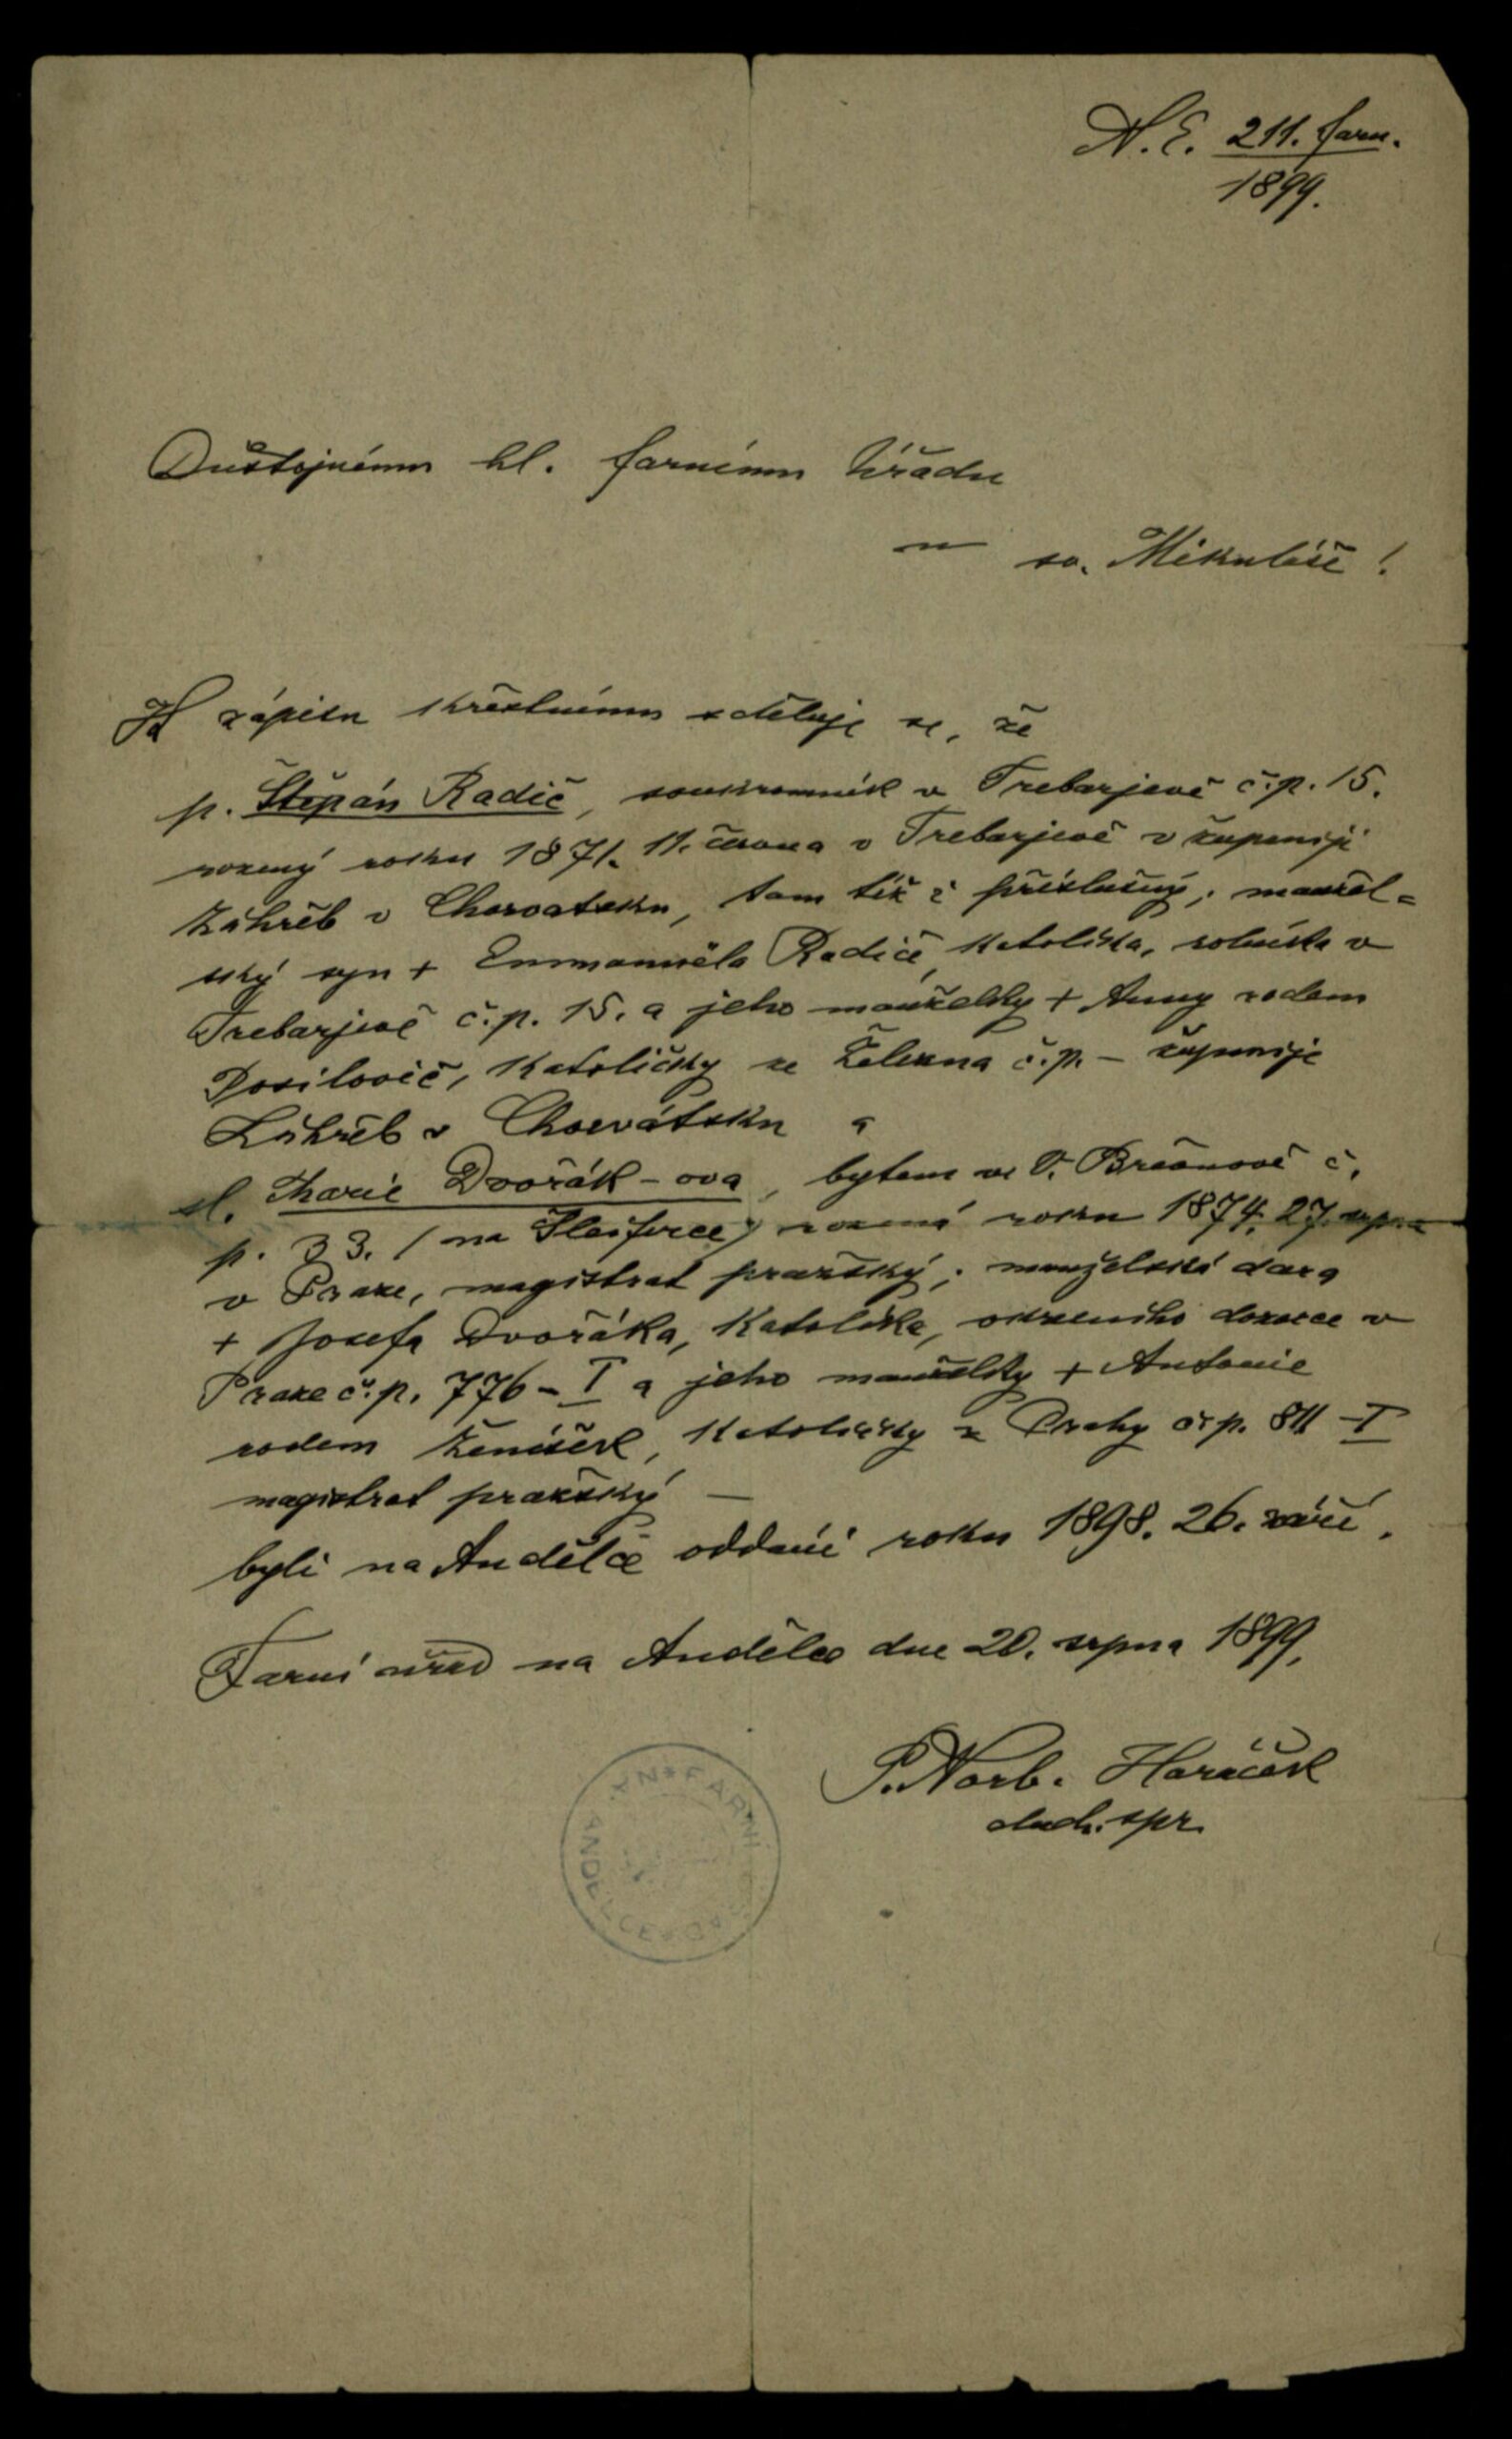 N. E. 211. farn.
1899.
Důstojnému sl. farnímu Úřadu
u sv. Mikuláše!
K zápisu křestnímu sděluje se, že
p. Štěpán Radič, soukromník v Trebarjevě č. p. 15.
rozený roku 1871. 11. června v Trebarjevě v županiji
Záhřeb v Chorvatsku, tam též i příslušný; manžel=
ský syn + Emmanuela Radiče, katolíka, rolníka v
Trebarjevě č. p. 15. a jeho manželky + Anny rodem
Posilovič, katoličky ze Železna č. p. – županije
Záhřeb v Chorvátsku a
sl. Marie Dvořák-ova, bytem ve V. Břevnově č.
p. 33. (na Šlejferce) rozená roku 1874. 27. srpna
v Praze, magistrat pražský; manželská dcera
+ Josefa Dvořáka, katolíka, dozorce v
Praze č. p. 776 – I a jeho manželky + Antonie
rodem Ženíšek, katoličky z Prahy čp. 811 – I
magistrat pražský –
byli na Andělce oddáni roku 1898. 26. září.
Farní úřad na Andělce dne 20. srpna 1899.
P. Norb. Horáček
duch. spr.
FARNÍ